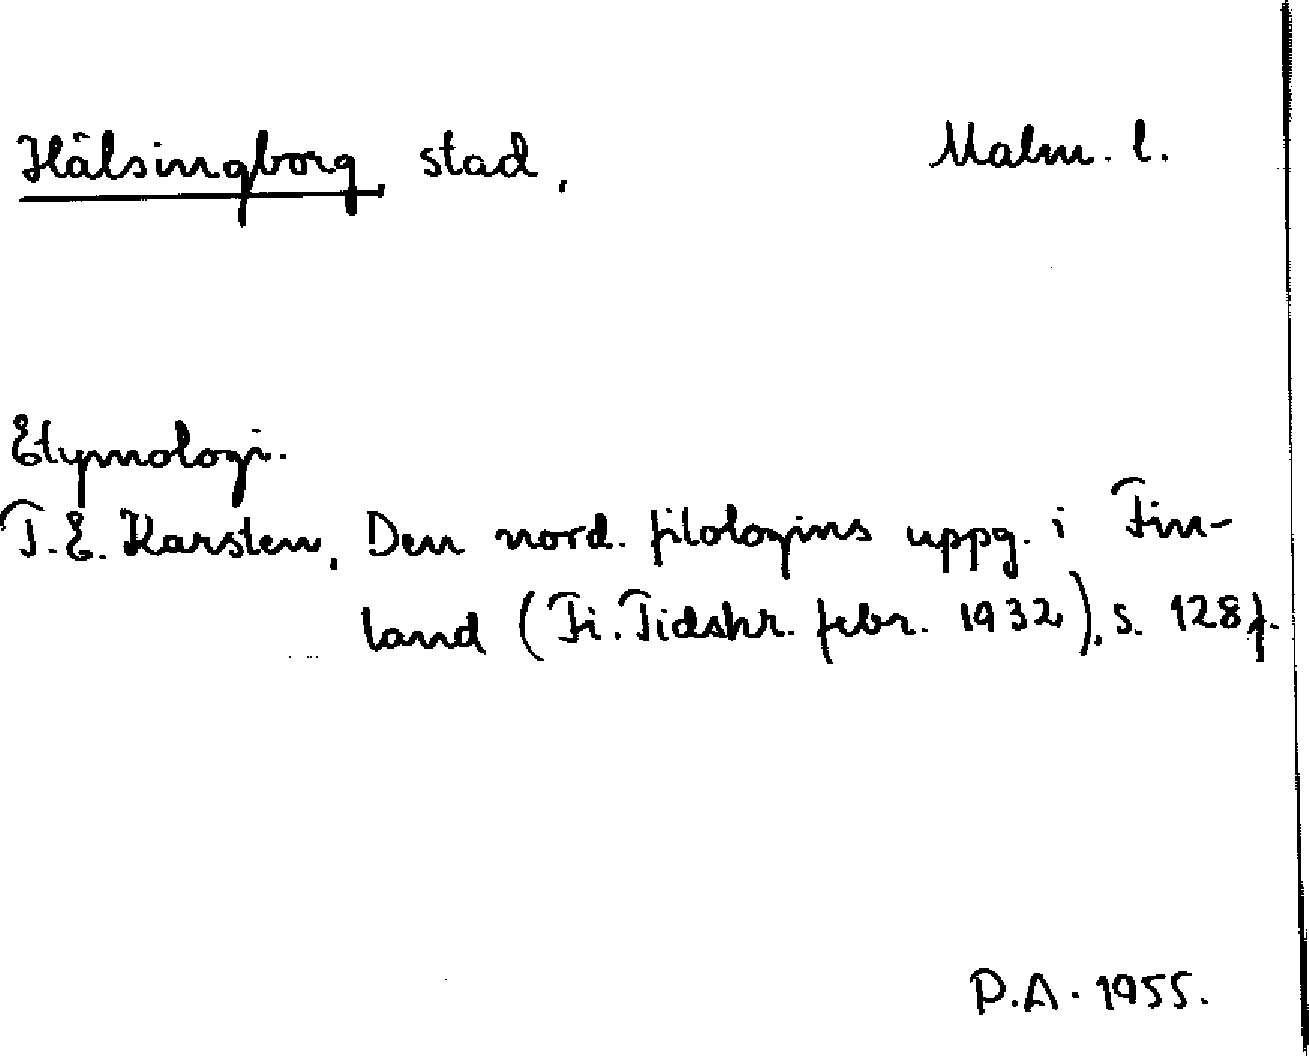 Hälsingborg, stad, Malm. l.
Etymologi.
T.E. Karsten, Den nord. filologins uppg. i Fin-
land (Fi. Tidskr. febr. 1932), s. 128f.
P.A. 1955.